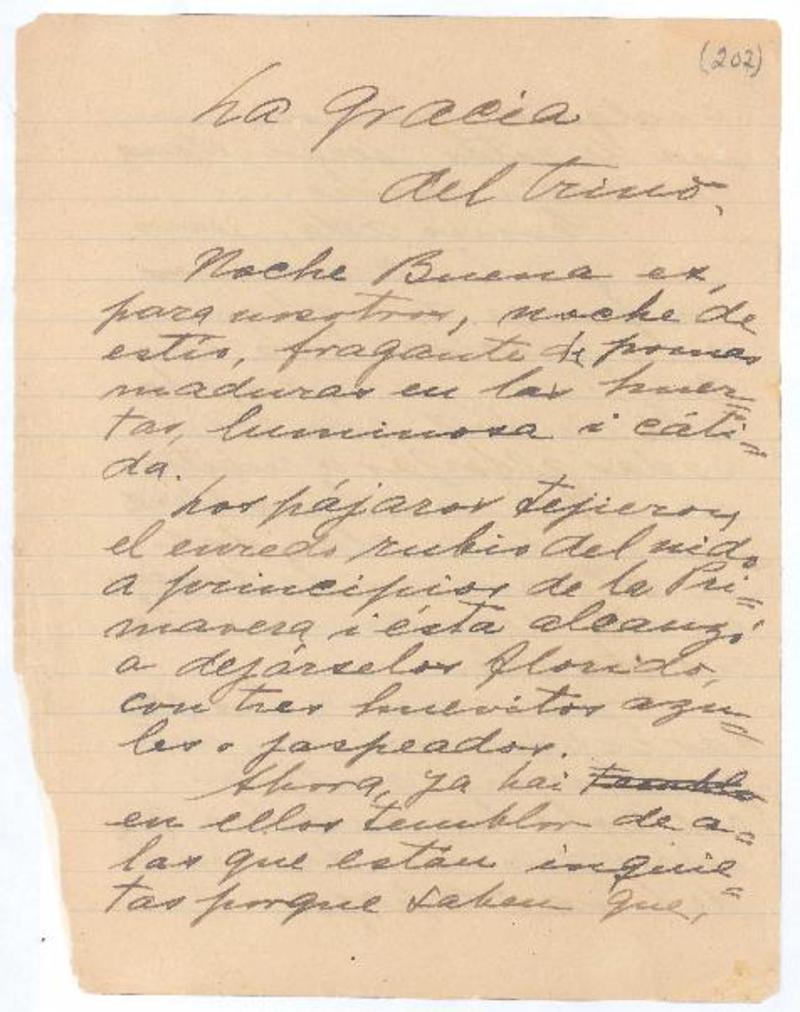 (202)
La gracia
del trino.
Noche Buena es,
para nosotros, noche de
estío, fragante de pomas
maduras en las huer=
tas, luminosa i cáli=
da.
Los pájaros tejieron
el enredo rubio del nido
a principios de la Pri=
mavera i ésta alcanzó
a dejárselos florido,
con tres huevitos azu=
les o jaspeados.
Ahora, ya hai temblo
en ellos temblor de a=
las que están inquie=
tas porque saben que,